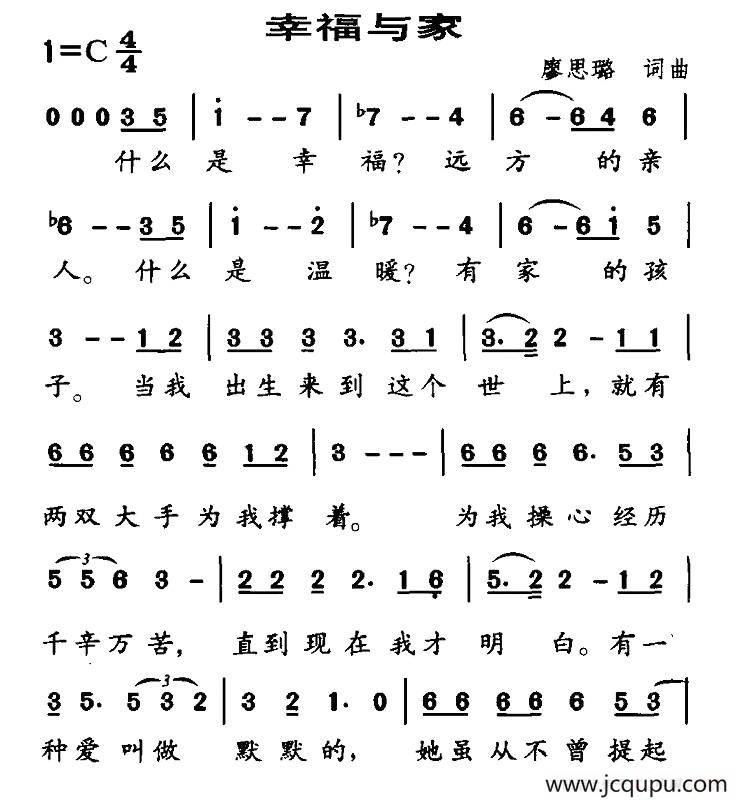 幸福与家
1=C 4/4
廖思璐 词曲
0 0 0 3 5 | i - - 7 | ♭7 - - 4 | 6 - 6 4 6 |
什么是 幸 福？远 方 的亲
♭6 - - 3 5 | i - - 2 | ♭7 - - 4 | 6 - 6 i 5 |
人。什么是 温 暖？有 家 的孩
3 - - 1 2 | 3 3 3 3. 3 1 | 3. 2 2 - 1 1 |
子。 当我 出生来到 这个 世 上，就有
6 6 6 6 6 1 2 | 3 - - - | 6 6 6 6. 5 3 |
两双大手为我撑 着。 为我操心 经历
5 5 6 3 - | 2 2 2 2. 1 6 | 5. 2 2 - 1 2 |
3
千辛万苦， 直到现在我才 明 白。有一
3 5. 5 3 2 | 3 2 1. 0 | 6 6 6 6 6 5 3 |
3
种爱 叫做 默默的， 她虽从不曾提起
www.jcqupu.com